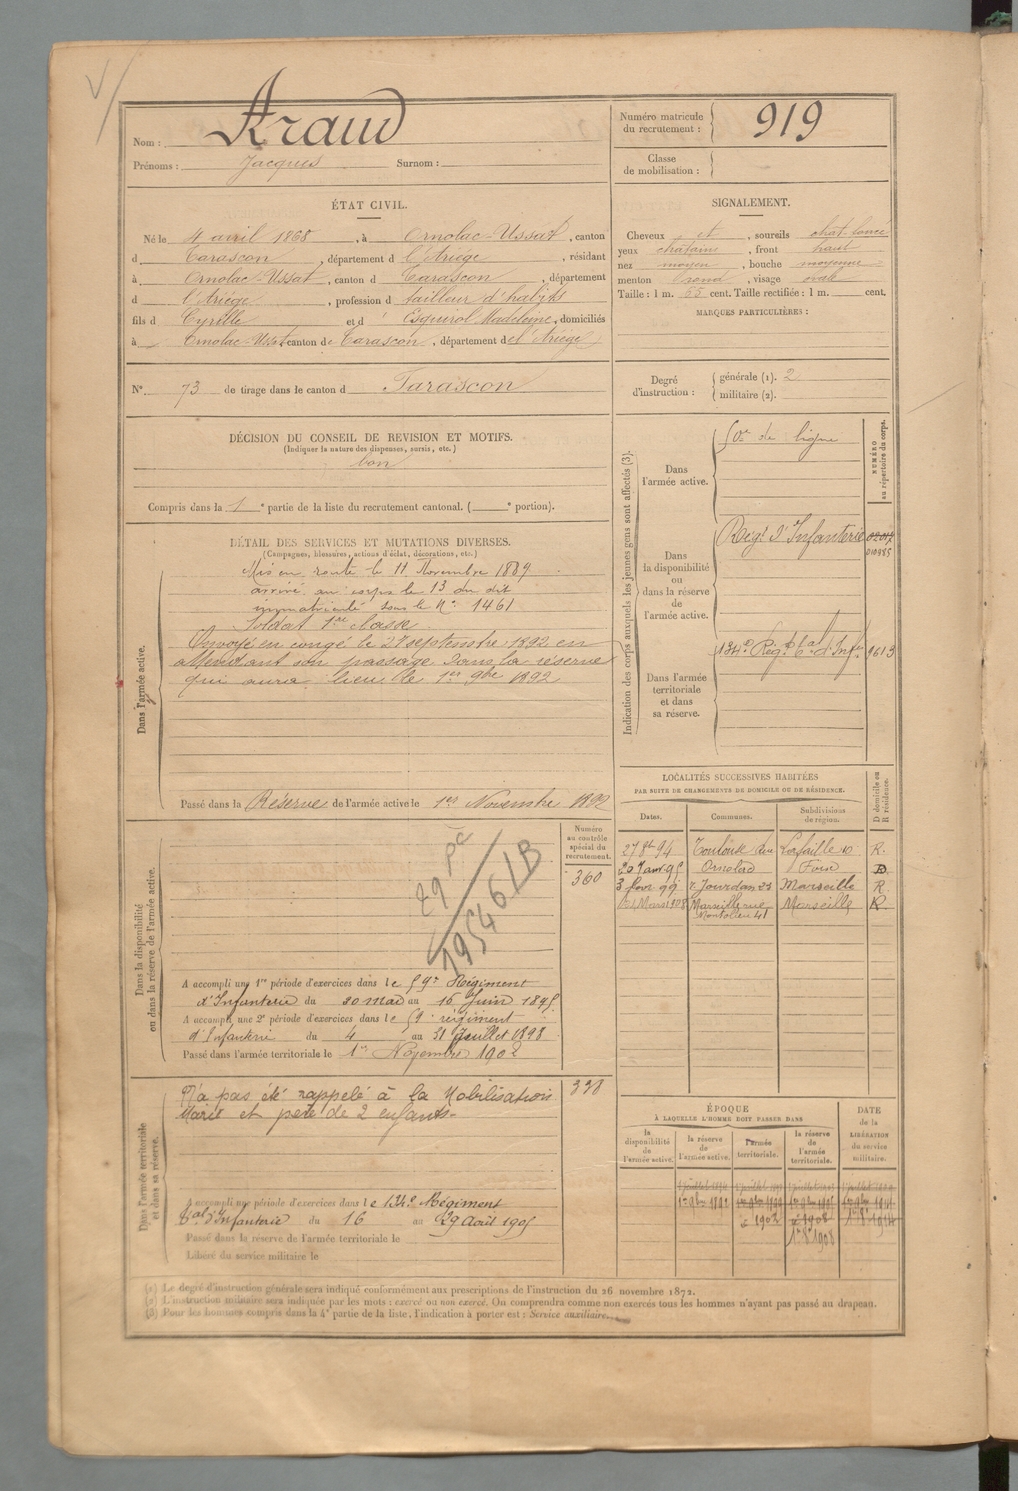 Nom : Araud
Prénoms : Jacques Surnom :
Numéro matricule du recrutement : 919
Classe de mobilisation :
ÉTAT CIVIL.
Né le 4 avril 1868, à Ornolac-Ussat, canton
d Tarascon, département d l'Ariége, résidant
à Ornolac-Ussat, canton d Tarascon, département
d l'Ariége, profession d tailleur d'habits
fils d Cyrille et d' Esquirol Madeleine, domiciliés
à Ornolac-Ussat canton de Tarascon, département de l'Ariége
N° 73 de tirage dans le canton d Tarascon
SIGNALEMENT.
Cheveux et, sourcils chat. foncé
yeux chatains, front haut
nez moyen, bouche moyenne
menton rond, visage ovale
Taille : 1 m. 55 cent. Taille rectifiée : 1 m. cent.
MARQUES PARTICULIÈRES :
Degré d'instruction :
générale (1). 2
militaire (2).
DÉCISION DU CONSEIL DE REVISION ET MOTIFS.
(Indiquer la nature des dispenses, sursis, etc.)
bon
Compris dans la 1e partie de la liste du recrutement cantonal. ( e portion).
DÉTAIL DES SERVICES ET MUTATIONS DIVERSES.
(Campagnes, blessures, actions d'éclat, décorations, etc.)
Dans l'armée active.
Mis en route le 11 Novembre 1889
arrivé au corps le 13 du dit
immatriculé sous le N° 1461
Soldat 1re classe
Envoyé en congé le 27 septembre 1892 en
attendant son passage dans la réserve
qui aura lieu le 1er 9bre 1892
Passé dans la Réserve de l'armée active le 1er Novembre 1892
Indication des corps auxquels les jeunes gens sont affectés (3).
NUMÉRO au répertoire du corps.
Dans l'armée active.
de ligne
Dans la disponibilité ou dans la réserve de l'armée active.
Régt d'Infanterie
010985
Dans l'armée territoriale et dans sa réserve.
134e Régt tal d'Infie 1613
LOCALITÉS SUCCESSIVES HABITÉES
PAR SUITE DE CHANGEMENTS DE DOMICILE OU DE RÉSIDENCE.
D domicile ou R résidence.
Dates. Communes. Subdivisions de région.
27 8bre 94 Toulouse rue Lafaille 10 R.
20 Janv 95 Ornolac Foix D.
3 fevr 99 r. Jourdan 21 Marseille R
Mars 1908 Marseille rue Montolieu 41 Marseille R.
Dans la disponibilité ou dans la réserve de l'armée active.
Numéro au contrôle spécial du recrutement.
360
195461B
A accompli une 1re période d'exercices dans le 59e Régiment
d'Infanterie du 20 mai au 16 Juin 1895
A accompli une 2e période d'exercices dans le 59e régiment
d'Infanterie du 4 au 31 Juillet 1898
Passé dans l'armée territoriale le 1er Novembre 1902
Dans l'armée territoriale et dans sa réserve.
N'a pas été rappelé à la Mobilisation
Marié et père de 2 enfants-
338
A accompli une période d'exercices dans le 134e Régiment
tal d'Infanterie du 16 au 29 Août 1905
Passé dans la réserve de l'armée territoriale le
Libéré du service militaire le
ÉPOQUE
À LAQUELLE L'HOMME DOIT PASSER DANS
la disponibilité de l'armée active.
la réserve de l'armée active.
l'armée territoriale.
la réserve de l'armée territoriale.
DATE de la LIBÉRATION du service militaire.
1er 9bre 1892
1902
1908
1914
(1) Le degré d'instruction générale sera indiqué conformément aux prescriptions de l'instruction du 26 novembre 1872.
(2) L'instruction militaire sera indiquée par les mots : exercé ou non exercé. On comprendra comme non exercés tous les hommes n'ayant pas passé au drapeau.
(3) Pour les hommes compris dans la 4e partie de la liste, l'indication à porter est : Service auxiliaire.